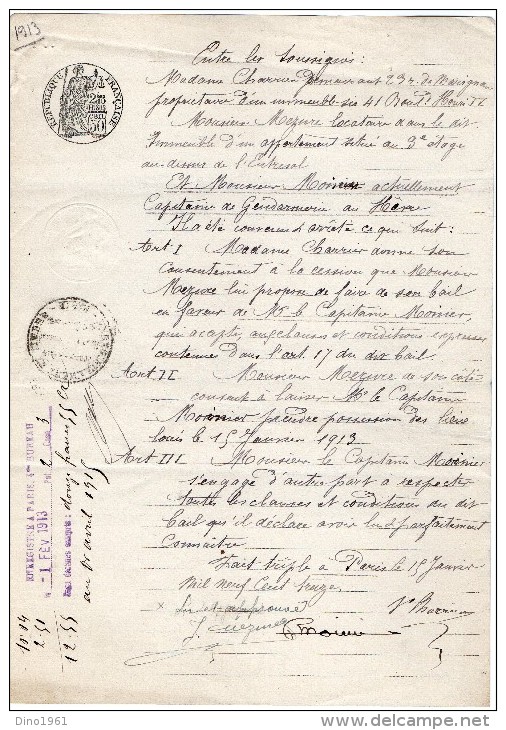 1913
RÉPUBLIQUE FRANÇAISE
Entre les soussignés :
Madame Charrier demeurant 23 r. de Marignan
propriétaire d'un immeuble sis 41 Boul.d Henri IV
Monsieur Mezure locataire dans le dit
Immeuble d'un appartement situé au 3e étage
au dessus de l'Entresol
Et Monsieur Monier actuellement
Capitaine de Gendarmerie au Havre
Il a été convenu et arrêté ce qui suit :
Art I Madame Charrier donne son
consentement à la cession que Monsieur
Mezure lui propose de faire de son bail
en faveur de Mr le Capitaine Monier,
qui accepte, aux clauses et conditions expresses
contenues dans l'art. 17 du dit bail.
Art II Monsieur Mezure de son côté
consent à laisser Mr le Capitaine
Monier prendre possession des lieux
loués le 15 Janvier 1913.
Art III Monsieur le Capitaine Monier
s'engage d'autre part à respecter
toutes les clauses et conditions du dit
bail qu'il déclare avoir lu et parfaitement
connaître
Fait triple à Paris le 15 Janvier
Mil neuf Cent treize
ENREGISTRÉ A PARIS, 4me BUREAU
- 1 FEV 1913
douze francs 55 ces
au 1er avril 1915
10.04
2.51
12.55
Dino1961
www.delcampe.net